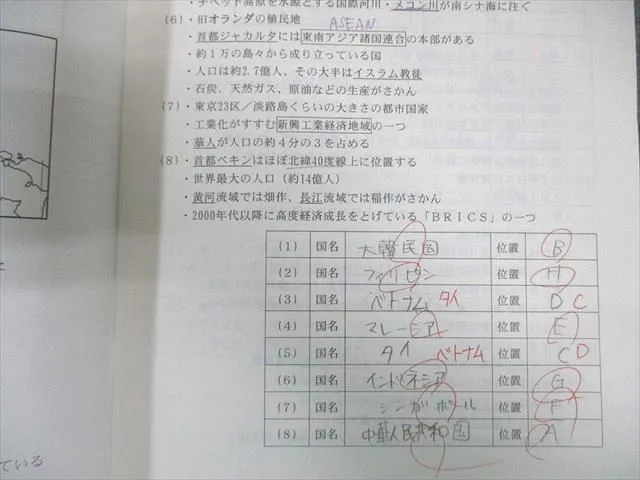 ・チベット高原を水源とする国際河川・メコン川が南シナ海に注ぐ
(6)・旧オランダの植民地
ASEAN
・首都ジャカルタには東南アジア諸国連合の本部がある
・約１万の島々から成り立っている国
・人口は約2.7億人、その大半はイスラム教徒
・石炭、天然ガス、原油などの生産がさかん
(7)・東京23区／淡路島くらいの大きさの都市国家
・工業化がすすむ新興工業経済地域の一つ
・華人が人口の約４分の３を占める
(8)・首都ペキンはほぼ北緯40度線上に位置する
・世界最大の人口（約14億人）
・黄河流域では畑作、長江流域では稲作がさかん
・2000年代以降に高度経済成長をとげている「ＢＲＩＣＳ」の一つ
(1) 国名 大韓民国 位置 B
(2) 国名 フィリピン 位置 H
(3) 国名 ベトナム タイ 位置 D C
(4) 国名 マレーシア 位置 E
(5) 国名 タイ ベトナム 位置 C D
(6) 国名 インドネシア 位置 G
(7) 国名 シンガポール 位置 F
(8) 国名 中華人民共和国 位置 A
ている